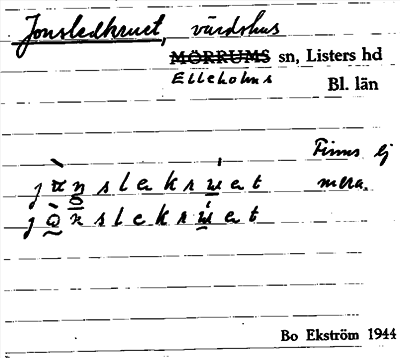 Jonsledkruet, värdshus
MÖRRUMS sn, Listers hd
Elleholms
Bl. län
Finns ej
mera.
Bo Ekström 1944